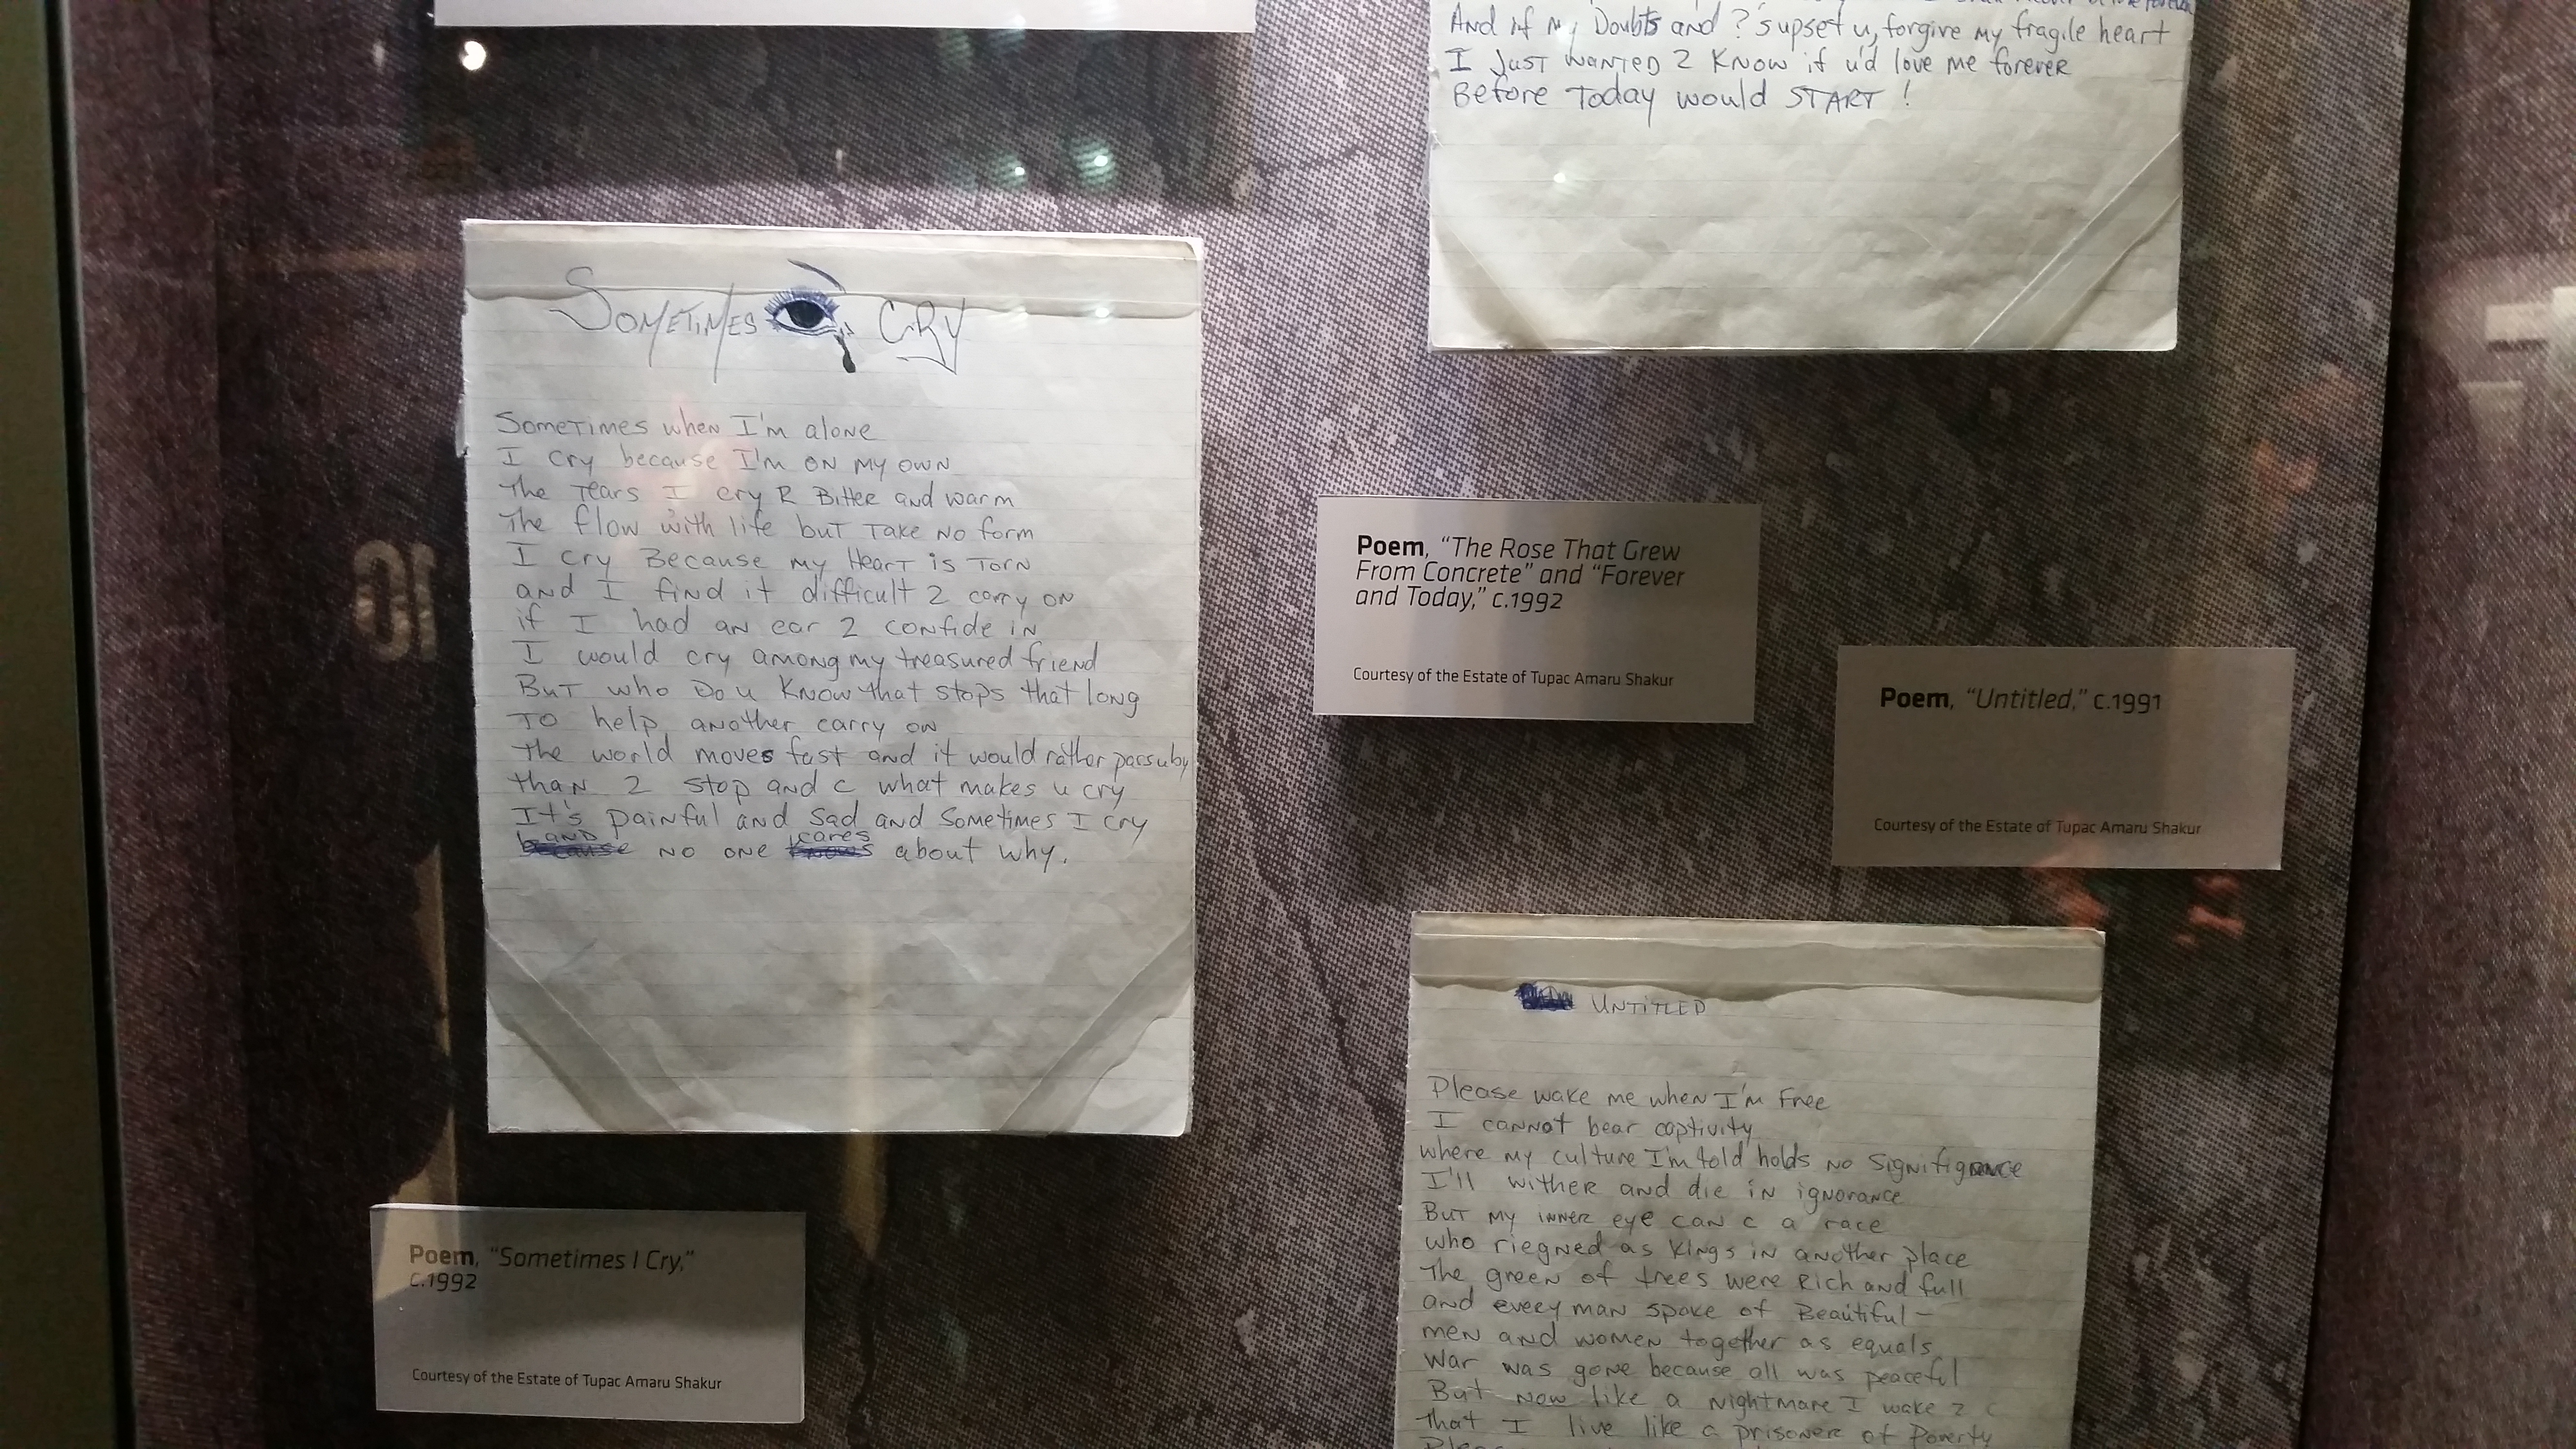 SOMETIMES CRY
Sometimes when I'm alone
I cry because I'm on my own
The tears I cry R Bitter and warm
The flow with life but take no form
I cry Because my Heart is torn
and I find it difficult 2 carry on
if I had an ear 2 confide in
I would cry among my treasured friend
But who do u know that stops that long
To help another carry on
The world moves fast and it would rather pass u by
than 2 stop and c what makes u cry
It's painful and sad and sometimes I cry
and no one cares about why.
Poem, “Sometimes I Cry,”
c.1992
Courtesy of the Estate of Tupac Amaru Shakur
And if my Doubts and ?'s upset u, forgive my fragile heart
I just wanted 2 know if u'd love me forever
Before Today would START !
Poem, “The Rose That Grew
From Concrete” and “Forever
and Today,” c.1992
Courtesy of the Estate of Tupac Amaru Shakur
Poem, “Untitled,” c.1991
Courtesy of the Estate of Tupac Amaru Shakur
UNTITLED
Please wake me when I'm Free
I cannot bear captivity
where my culture I'm told holds no signifigance
I'll wither and die in ignorance
But my inner eye can c a race
who riegned as kings in another place
The green of trees were Rich and full
and every man spoke of Beautiful-
men and women together as equals
War was gone because all was peaceful
But now like a nightmare I wake 2 c
That I live like a prisoner of Poverty